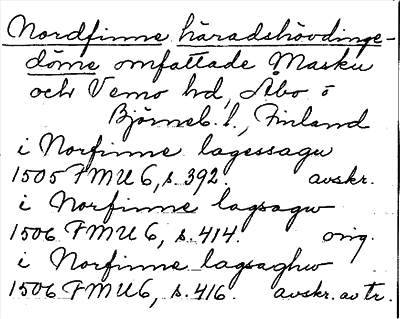 Nordfinne häradshövdinge-
döme omfattade Masku
och Vemo hd, Åbo o
Björneb. l., Finland
i Norfinne lagessagu
1505 FMU 6, s. 392. avskr.
i Norfinne lagsagw
1506 FMU 6, s. 414. orig.
i Norfinne lagsaghw
1506 FMU 6, s. 416. avskr. av tr.